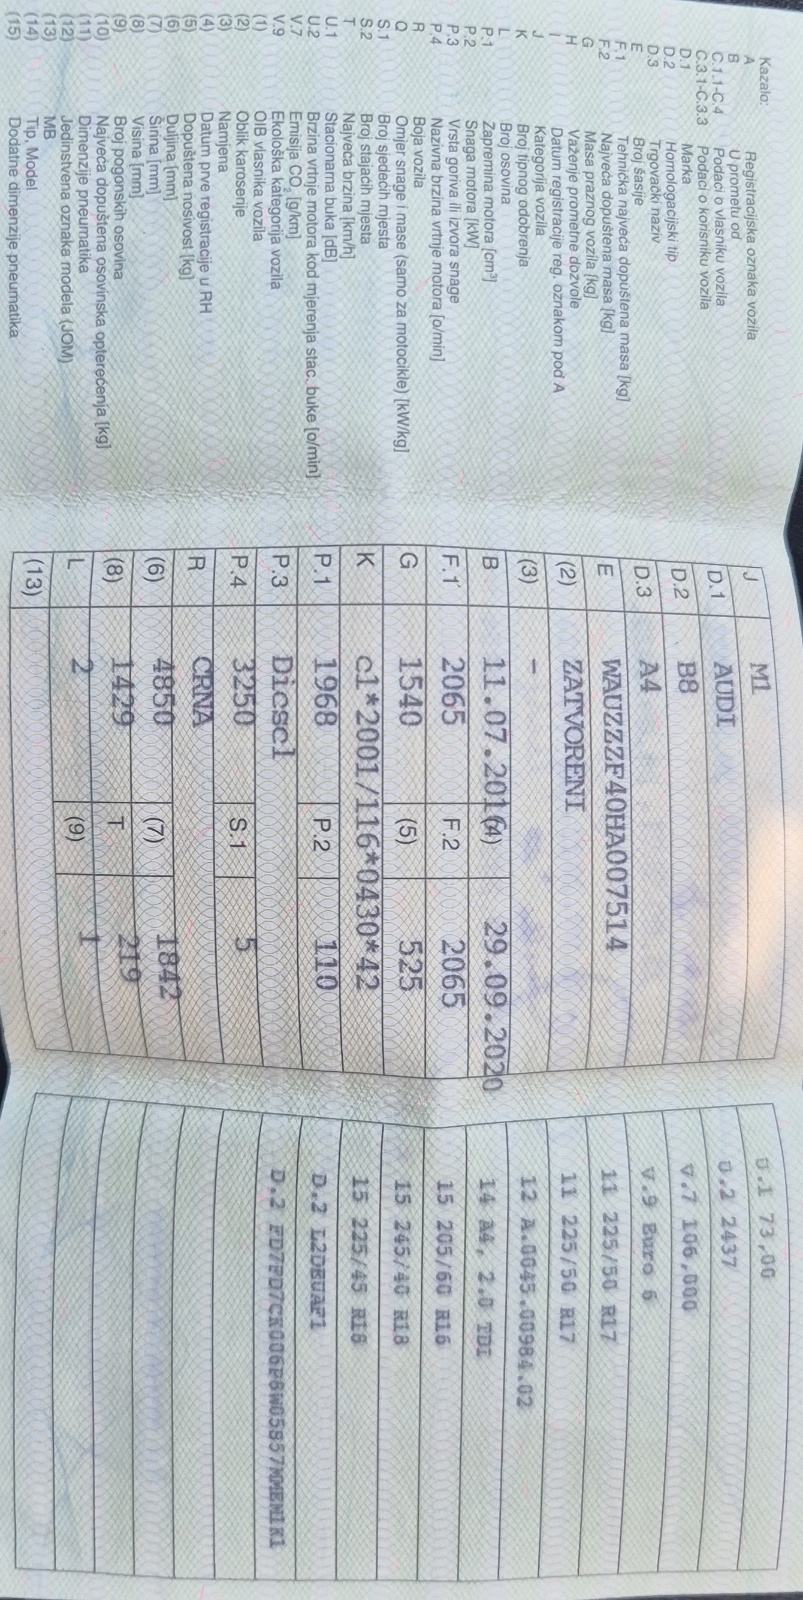 Kazalo:
A Registracijska oznaka vozila
B U prometu od
C.1.1-C.4 Podaci o vlasniku vozila
C.3.1-C.3.3 Podaci o korisniku vozila
D.1 Marka
D.2 Homologacijski tip
D.3 Trgovački naziv
E Broj šasije
F.1 Tehnička najveća dopuštena masa [kg]
F.2 Najveća dopuštena masa [kg]
G Masa praznog vozila [kg]
H Važenje prometne dozvole
I Datum registracije reg. oznakom pod A
J Kategorija vozila
K Broj tipnog odobrenja
L Broj osovina
P.1 Zapremina motora [cm³]
P.2 Snaga motora [kW]
P.3 Vrsta goriva ili izvora snage
P.4 Nazivna brzina vrtnje motora [o/min]
R Boja vozila
Q Omjer snage i mase (samo za motocikle) [kW/kg]
S.1 Broj sjedećih mjesta
S.2 Broj stajaćih mjesta
T Najveća brzina [km/h]
U.1 Stacionarna buka [dB]
U.2 Brzina vrtnje motora kod mjerenja stac. buke [o/min]
V.7 Emisija CO₂ [g/km]
V.9 Ekološka kategorija vozila
(1) OIB vlasnika vozila
(2) Oblik karoserije
(3) Namjena
(4) Datum prve registracije u RH
(5) Dopuštena nosivost [kg]
(6) Duljina [mm]
(7) Širina [mm]
(8) Visina [mm]
(9) Broj pogonskih osovina
(10) Najveća dopuštena osovinska opterećenja [kg]
(11) Dimenzije pneumatika
(12) Jedinstvena oznaka modela (JOM)
(13) MB
(14) Tip, Model
(15) Dodatne dimenzije pneumatika
J M1
D.1 AUDI
D.2 B8
D.3 A4
E WAUZZZF40HA007514
(2) ZATVORENI
(3) -
B 11.07.2016 (4) 29.09.2020
F.1 2065 F.2 2065
G 1540 (5) 525
K e1*2001/116*0430*42
P.1 1968 P.2 110
P.3 Diesel
P.4 3250 S.1 5
R CRNA
(6) 4850 (7) 1842
(8) 1429 T 219
L 2 (9) 1
(13)
U.1 73,00
U.2 2437
V.7 106,000
V.9 Euro 6
11 225/50 R17
11 225/50 R17
12 A.0045.00984.02
14 A4, 2.0 TDI
15 205/60 R16
15 245/40 R18
15 225/45 R18
D.2 L2DEUAF1